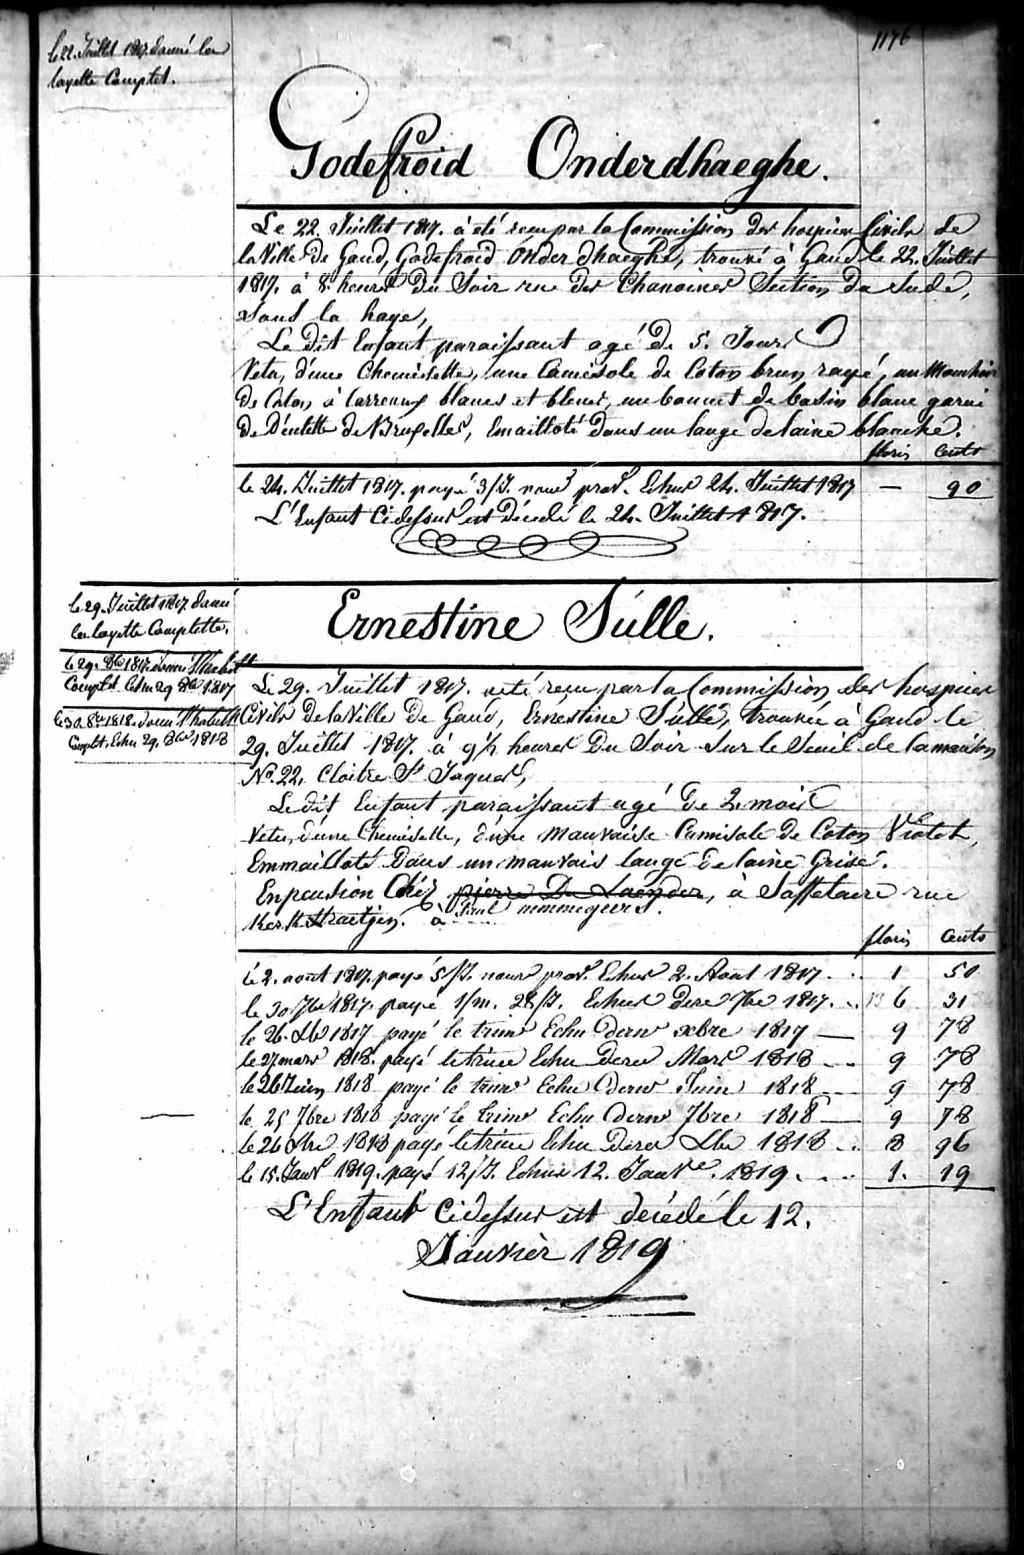 1176
le 22. Juillet 1817. donné la
layette Complet.
Godefroid Onderdhaeghe.
Le 22. Juillet 1817. à été recu par la Commission des hospices Civils de
la Ville de Gand, Godefroid Onderdhaeghe, trouvé à Gand le 22. Juillet
1817. à 8. heures Du Soir rue Des Chanoines Section du Sude,
Sous la haye,
Le dit Enfant paraissant agé De 5. Jours
Vetu, d'une Chemisette, une Camisole de Coton brun rayé, un Mouchoir
De Coton à Carreaux blancs et bleus, un bonnet de basin blanc garni
De Dentelle de Bruxelles, Emailloté Dans un lange de laine blanche.
floris cents
le 24. Juillet 1817. payé 3/J. nour prov. Echus 24. Juillet 1817 — 90
L'Enfant Cidessus est Décedé le 24. Juillet 1817.
le 29. Juillet 1817 donné
la layette Complette.
le 29. 8bre 1817. donné
Complet Echu 29 8bre 1817
le 30. 8bre 1818. donné
Complet. Echu 29. 8bre 1818
Ernestine Sulle.
Le 29. Juillet 1817. a eté recu par la Commission des hospices
Civils De la Ville De Gand, Ernestine Sulle, trouvée à Gand le
29. Juillet 1817. à 9½ heures Du Soir Sur le Seuil de la maison
No. 22. Cloitre St Jaques,
Le dit Enfant paraissant agé De 2. mois
Vetu, d'une Chemisette, d'une mauvaise Camisole De Coton Violet,
Emmailloté Dans un mauvais lange De laine Grise.
En pension Chéz pierre De Laender, à Saffelaere rue
Kerkstraetjen. à Paul nimmegeers.
floris cents
le 2. août 1817. payé 5/J. nour prov. Echus 2. Aout 1817. . . 1 50
le 30 7bre 1817. payé 1/m. 28/J. Echus Dere 7bre 1817. . . 6 31
le 26. Xbre 1817 payé le trime Echu Dern xbre 1817 — 9 78
le 27 mars 1818. payé le trime Echu Derer Mars 1818 — 9 78
le 26 Juin 1818 payé le trime Echu Dern Juin 1818 — 9 78
le 25 7bre 1818 payé le trime Echu dern 7bre 1818 — 9 78
le 26 Xbre 1818 payé le trime Echu Derer Xbre 1818 . . 8 96
le 15. Janv. 1819. payé 12/J. Echus 12. Janvre. 1819. . . . 1. 19
L'Enfant Cidessus est décédé le 12.
Janvièr 1819